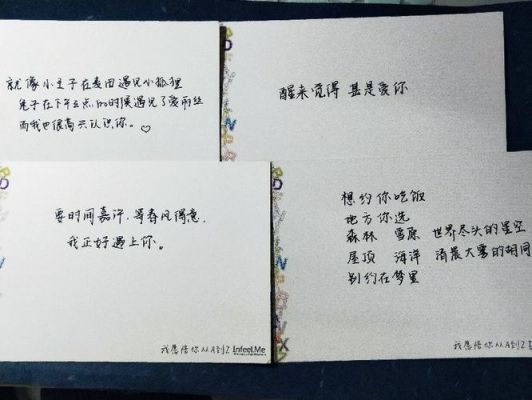 就像小王子在麦田遇见小狐狸
兔子在下午三点的时候遇见了爱丽丝
而我也很高兴认识你。♡
醒来觉得 甚是爱你
要时间嘉许，等春风得意，
我正好遇上你。
我愿陪你从A到Z InfeelMe
想约你吃饭
地方你选
森林 雪原 世界尽头的星空
屋顶 海洋 清晨大雾的胡同
别约在梦里
我愿陪你从A到Z